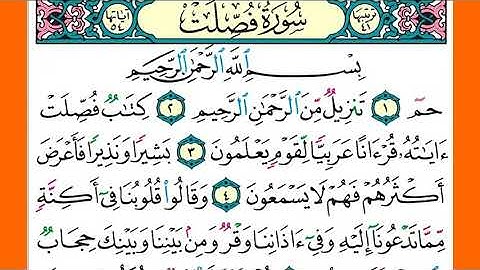 ترتيبها ٤١ سُورَةُ فُصِّلَتْ آياتها ٥٤
بِسْمِ ٱللَّهِ ٱلرَّحْمَٰنِ ٱلرَّحِيمِ
حمٓ ١ تَنزِيلٌ مِّنَ ٱلرَّحْمَٰنِ ٱلرَّحِيمِ ٢ كِتَٰبٌ فُصِّلَتْ
ءَايَٰتُهُۥ قُرْءَانًا عَرَبِيًّا لِّقَوْمٍ يَعْلَمُونَ ٣ بَشِيرًا وَنَذِيرًا فَأَعْرَضَ
أَكْثَرُهُمْ فَهُمْ لَا يَسْمَعُونَ ٤ وَقَالُوا۟ قُلُوبُنَا فِىٓ أَكِنَّةٍ
مِّمَّا تَدْعُونَآ إِلَيْهِ وَفِىٓ ءَاذَانِنَا وَقْرٌ وَمِنۢ بَيْنِنَا وَبَيْنِكَ حِجَابٌ